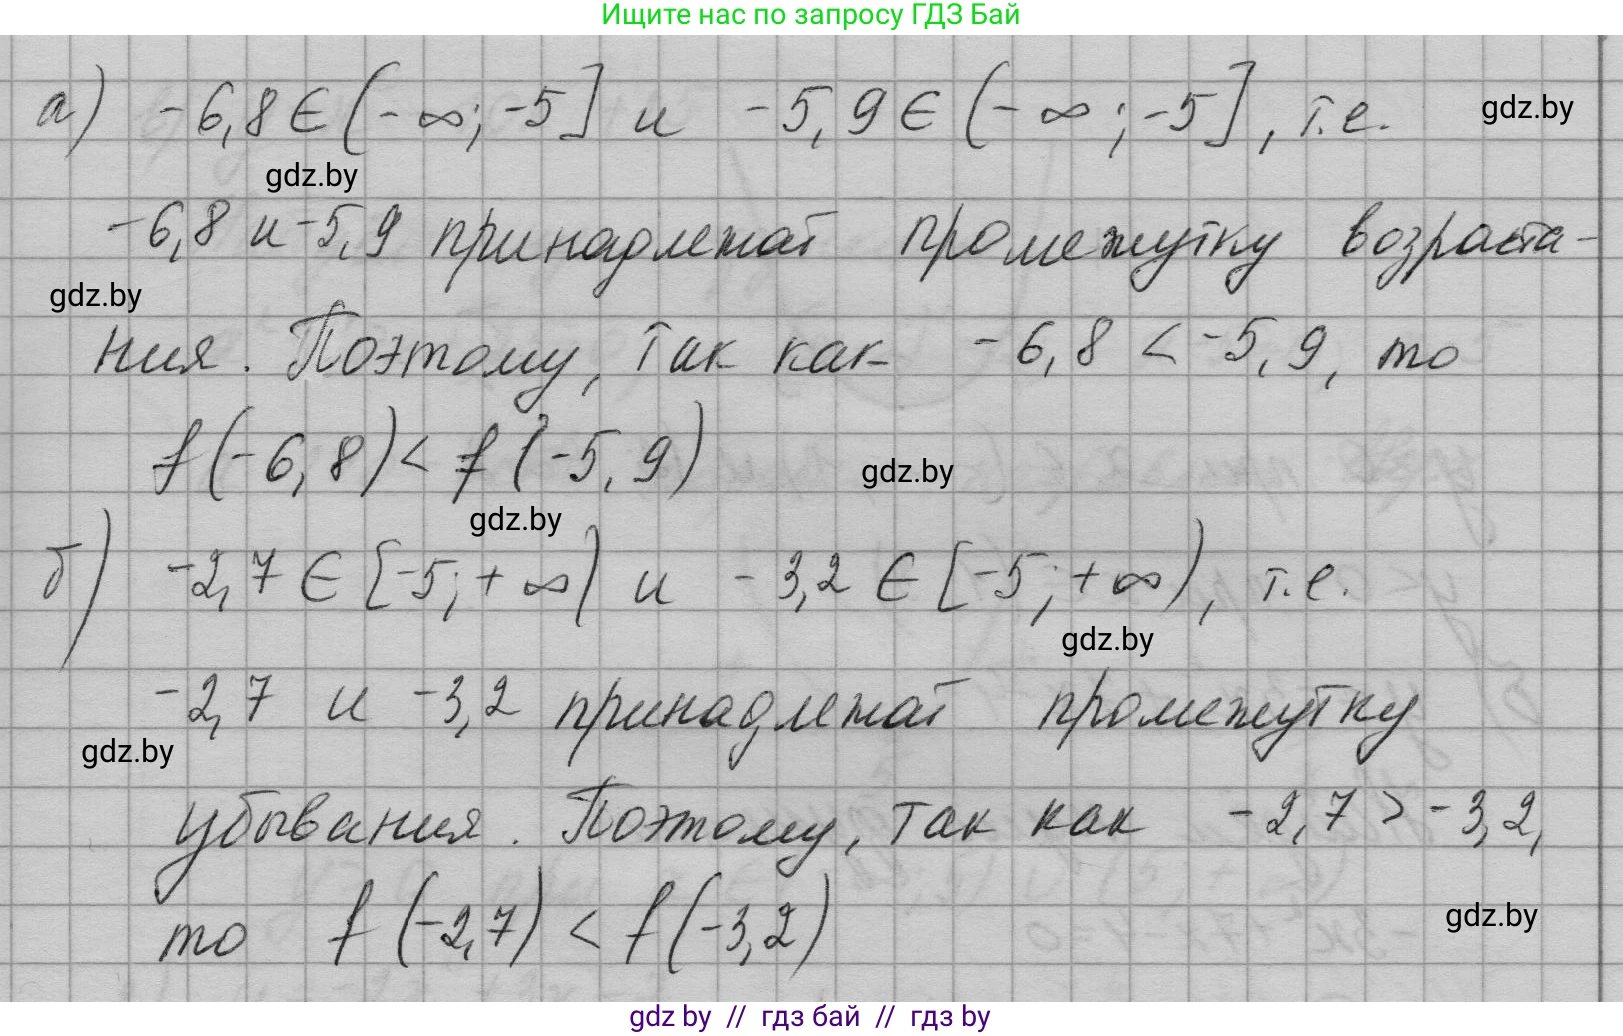 Ищите нас по запросу ГДЗ Бай
а) -6,8 ∈ (-∞; -5] и -5,9 ∈ (-∞; -5], т.е.
gdz.by
gdz.by
-6,8 и -5,9 принадлежат промежутку возраста-
gdz.by
ния. Поэтому, так как -6,8 < -5,9, то
f(-6,8) < f(-5,9)
gdz.by
gdz.by
б) -2,7 ∈ [-5; +∞) и -3,2 ∈ [-5; +∞), т.е.
gdz.by
-2,7 и -3,2 принадлежат промежутку
gdz.by
убывания. Поэтому, так как -2,7 > -3,2,
то f(-2,7) < f(-3,2)
gdz.by
gdz by // гдз бай // гдз by